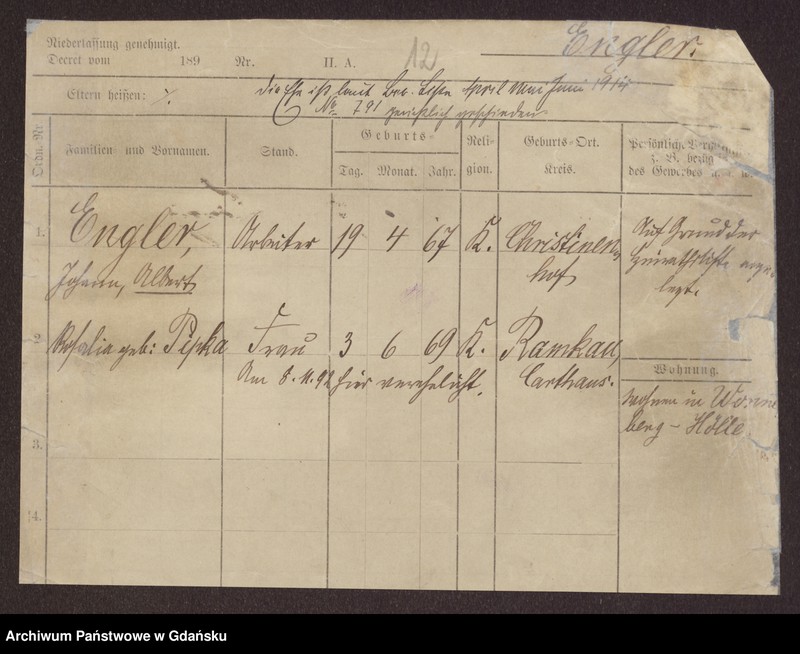 Niederlassung genehmigt.
Decret vom 189 Nr. II. A.
12
Engler.
Eltern heißen: ./.
die Ehe ist laut Ber. Liste April Mai Juni 1914
No 791 gerichtlich geschieden
Ordn. Nr. Familien und Vornamen. Stand. Geburts- Tag. Monat. Jahr. Religion. Geburts-Ort. Kreis. Persönlich. z. B. bezügl. des Gewerbes u. s. w.
1. Engler, Arbeiter 19 4 67 K. Christinen
Johann, Albert hof
Auf Grund der
Heirathsliste ange-
legt.
2 Rosalia geb: Pipka Frau 3 6 69 K. Ramkau,
Am 8. 11. 92 hier verehelicht. Carthaus.
Wohnung.
wohnen in Wonne
berg - Hölle
3.
4.
Archiwum Państwowe w Gdańsku